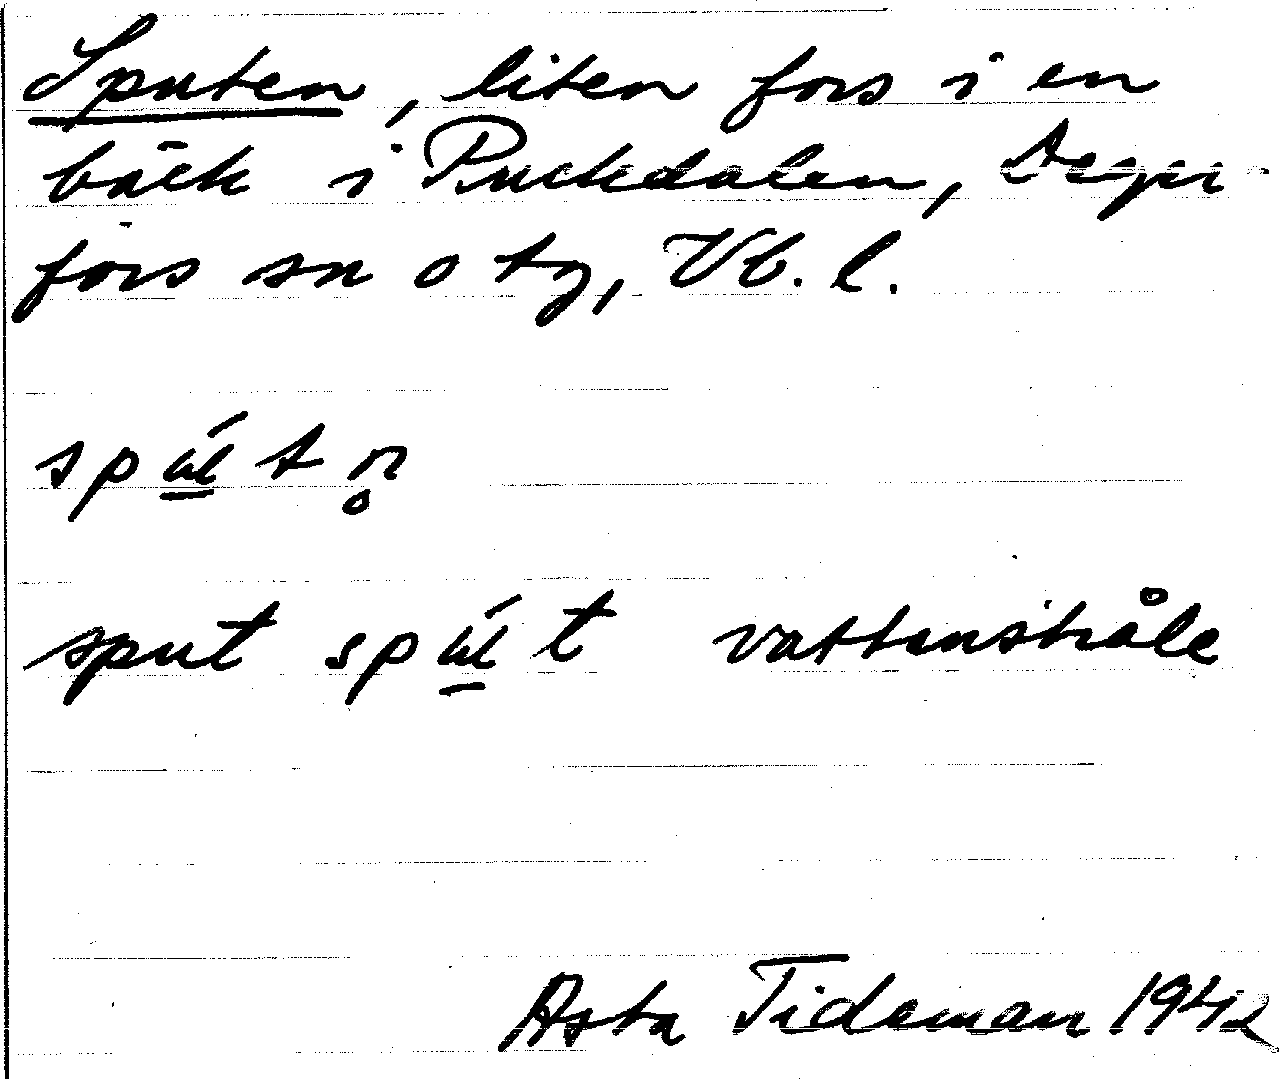 Sputen, liten fors i en
bäck i Puckdalen, Deger-
fors sn o tg, Vb. l.
spʉ́tn̥
sput spʉ́t vattenstråle
Asta Tideman 1942